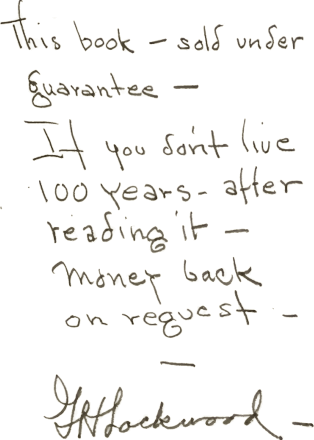 This book – sold under
guarantee –
If you don't live
100 years - after
reading it –
money back
on request –
–
G H Lockwood –